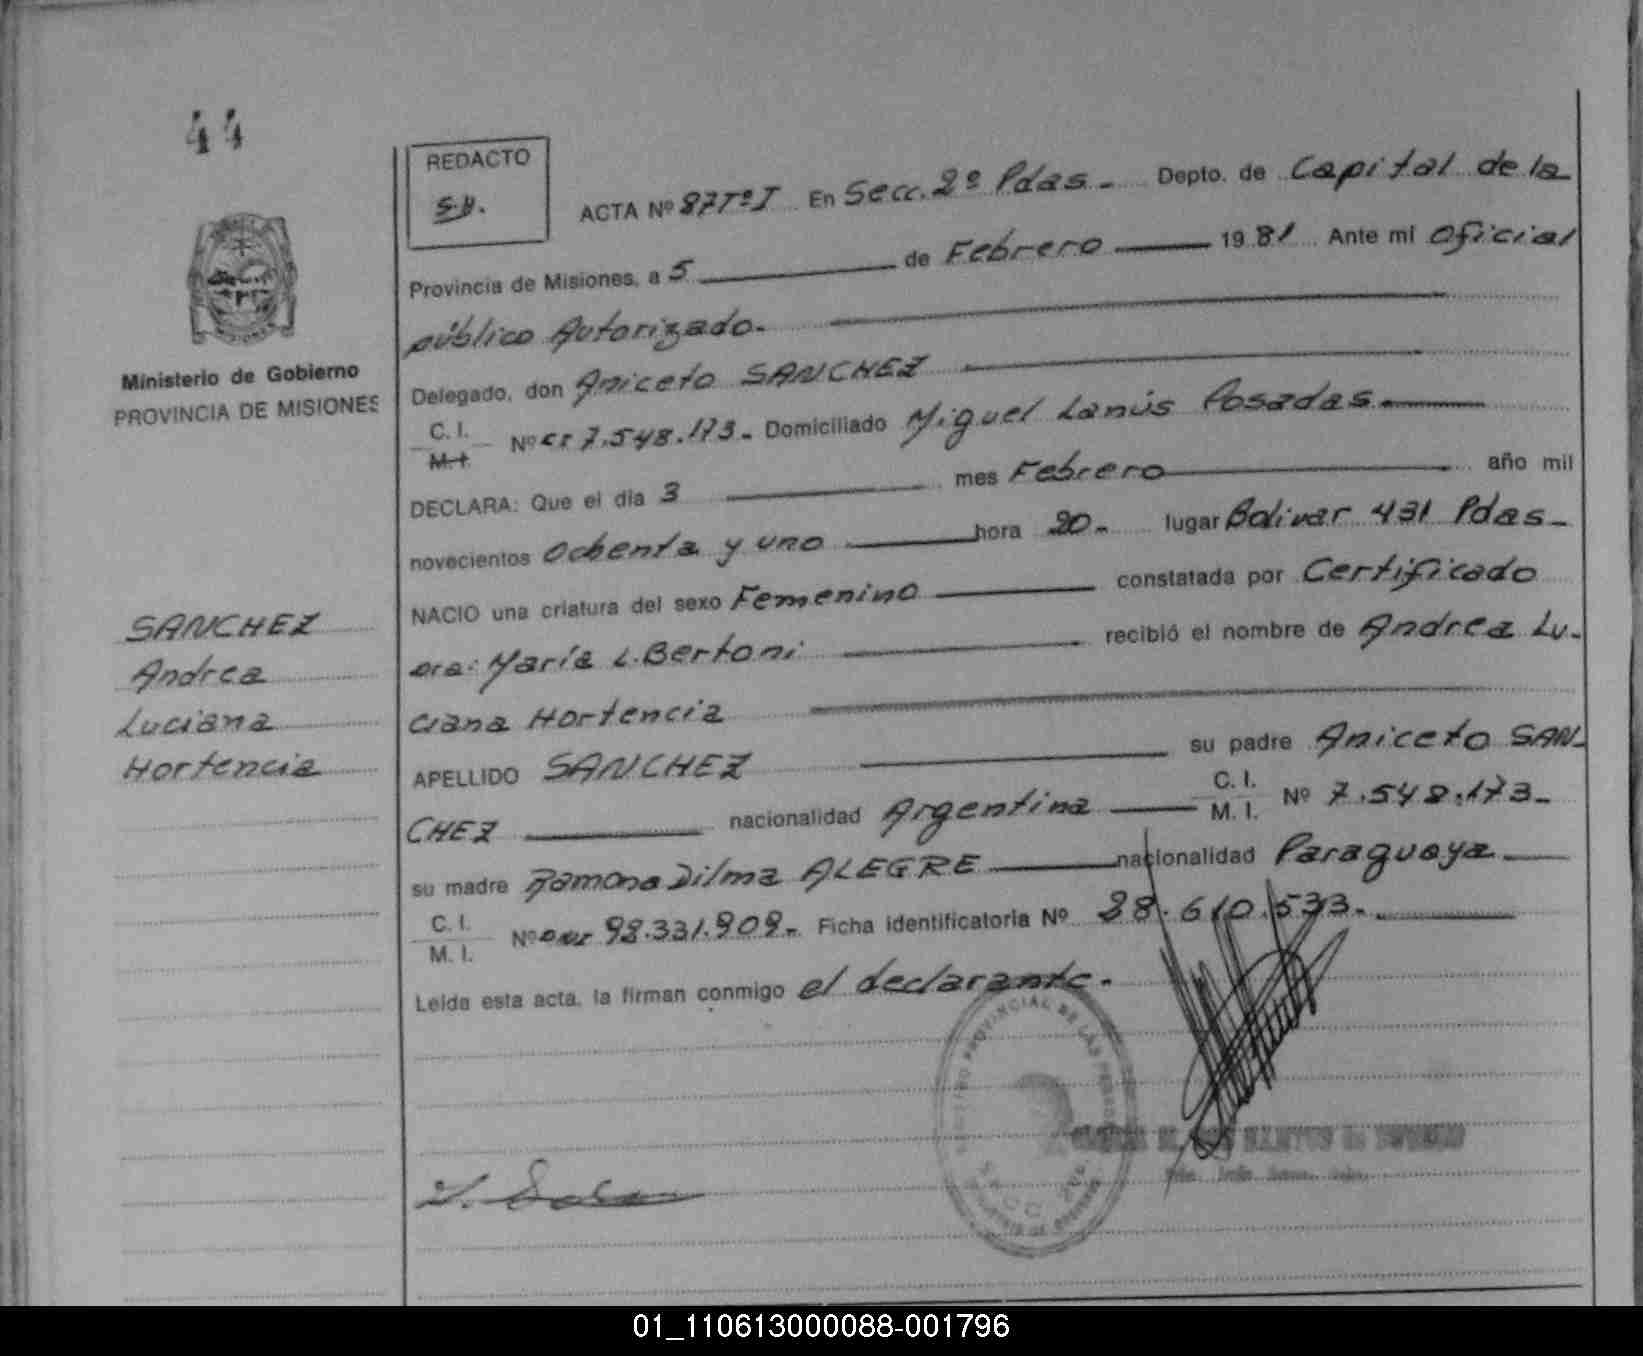 44
REDACTO
S.H.
ACTA Nº 87 Tº I En Secc. 2º Pdas. Depto. de Capital de la
Provincia de Misiones, a 5 de Febrero 1981 Ante mi Oficial
público Autorizado.
Delegado, don Aniceto SANCHEZ
C. I.
M. I.
Nº CI 7.548.173. Domiciliado Miguel Lanús Posadas.
DECLARA: Que el día 3 mes Febrero año mil
novecientos Ochenta y uno hora 20. lugar Bolivar 431 Pdas.
NACIO una criatura del sexo Femenino constatada por Certificado
Dra: María L. Bertoni recibió el nombre de Andrea Lu-
ciana Hortencia
APELLIDO SANCHEZ su padre Aniceto SAN-
CHEZ nacionalidad Argentina C. I. M. I. Nº 7.548.173.
su madre Ramona Dilma ALEGRE nacionalidad Paraguaya
C. I.
M. I.
Nº 92.331.909. Ficha identificatoria Nº 28.610.533.
Leída esta acta, la firman conmigo el declarante.
Ministerio de Gobierno
PROVINCIA DE MISIONES
SANCHEZ
Andrea
Luciana
Hortencia
PROVINCIAL DE LAS
01_110613000088-001796